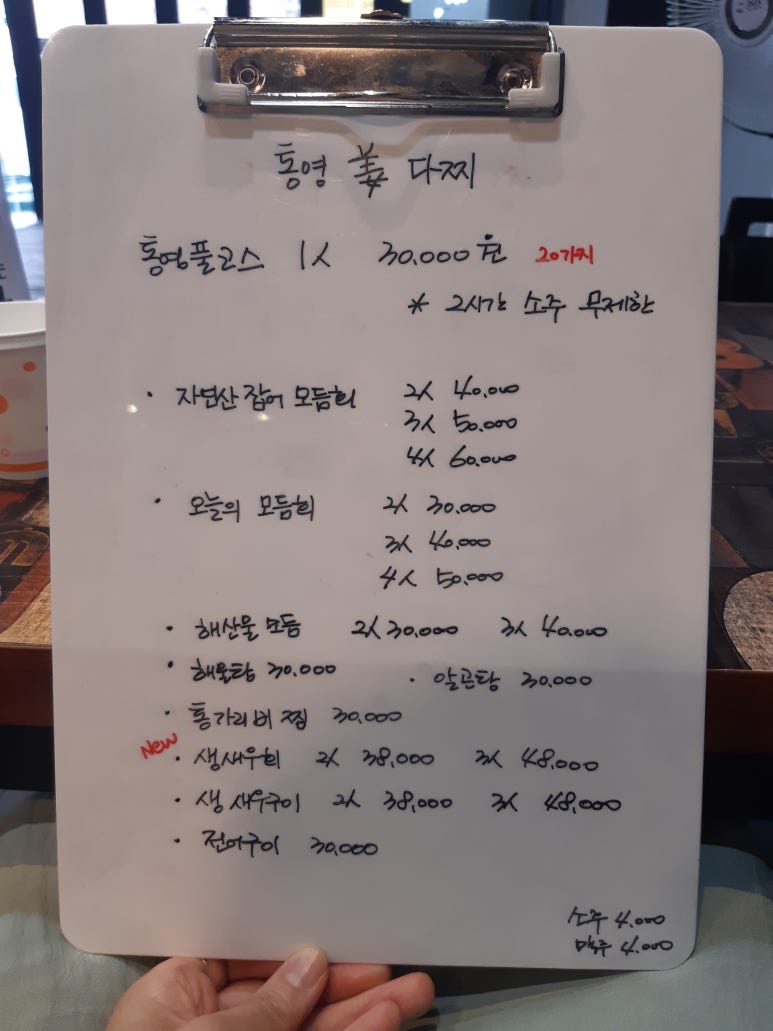 통영 美 다찌
통영풀코스 1人 30.000원 20가지
* 2시간 소주 무제한
· 자연산 잡어 모듬회 2人 40.000
3人 50.000
4人 60.000
· 오늘의 모듬회 2人 30.000
3人 40.000
4人 50.000
· 해산물 모듬 2人 30.000 3人 40.000
· 해물탕 30.000 · 알곤탕 30.000
· 통가리비 찜 30.000
New · 생새우회 2人 38,000 3人 48,000
· 생새우구이 2人 38,000 3人 48,000
· 전어구이 30,000
소주 4.000
맥주 4.000